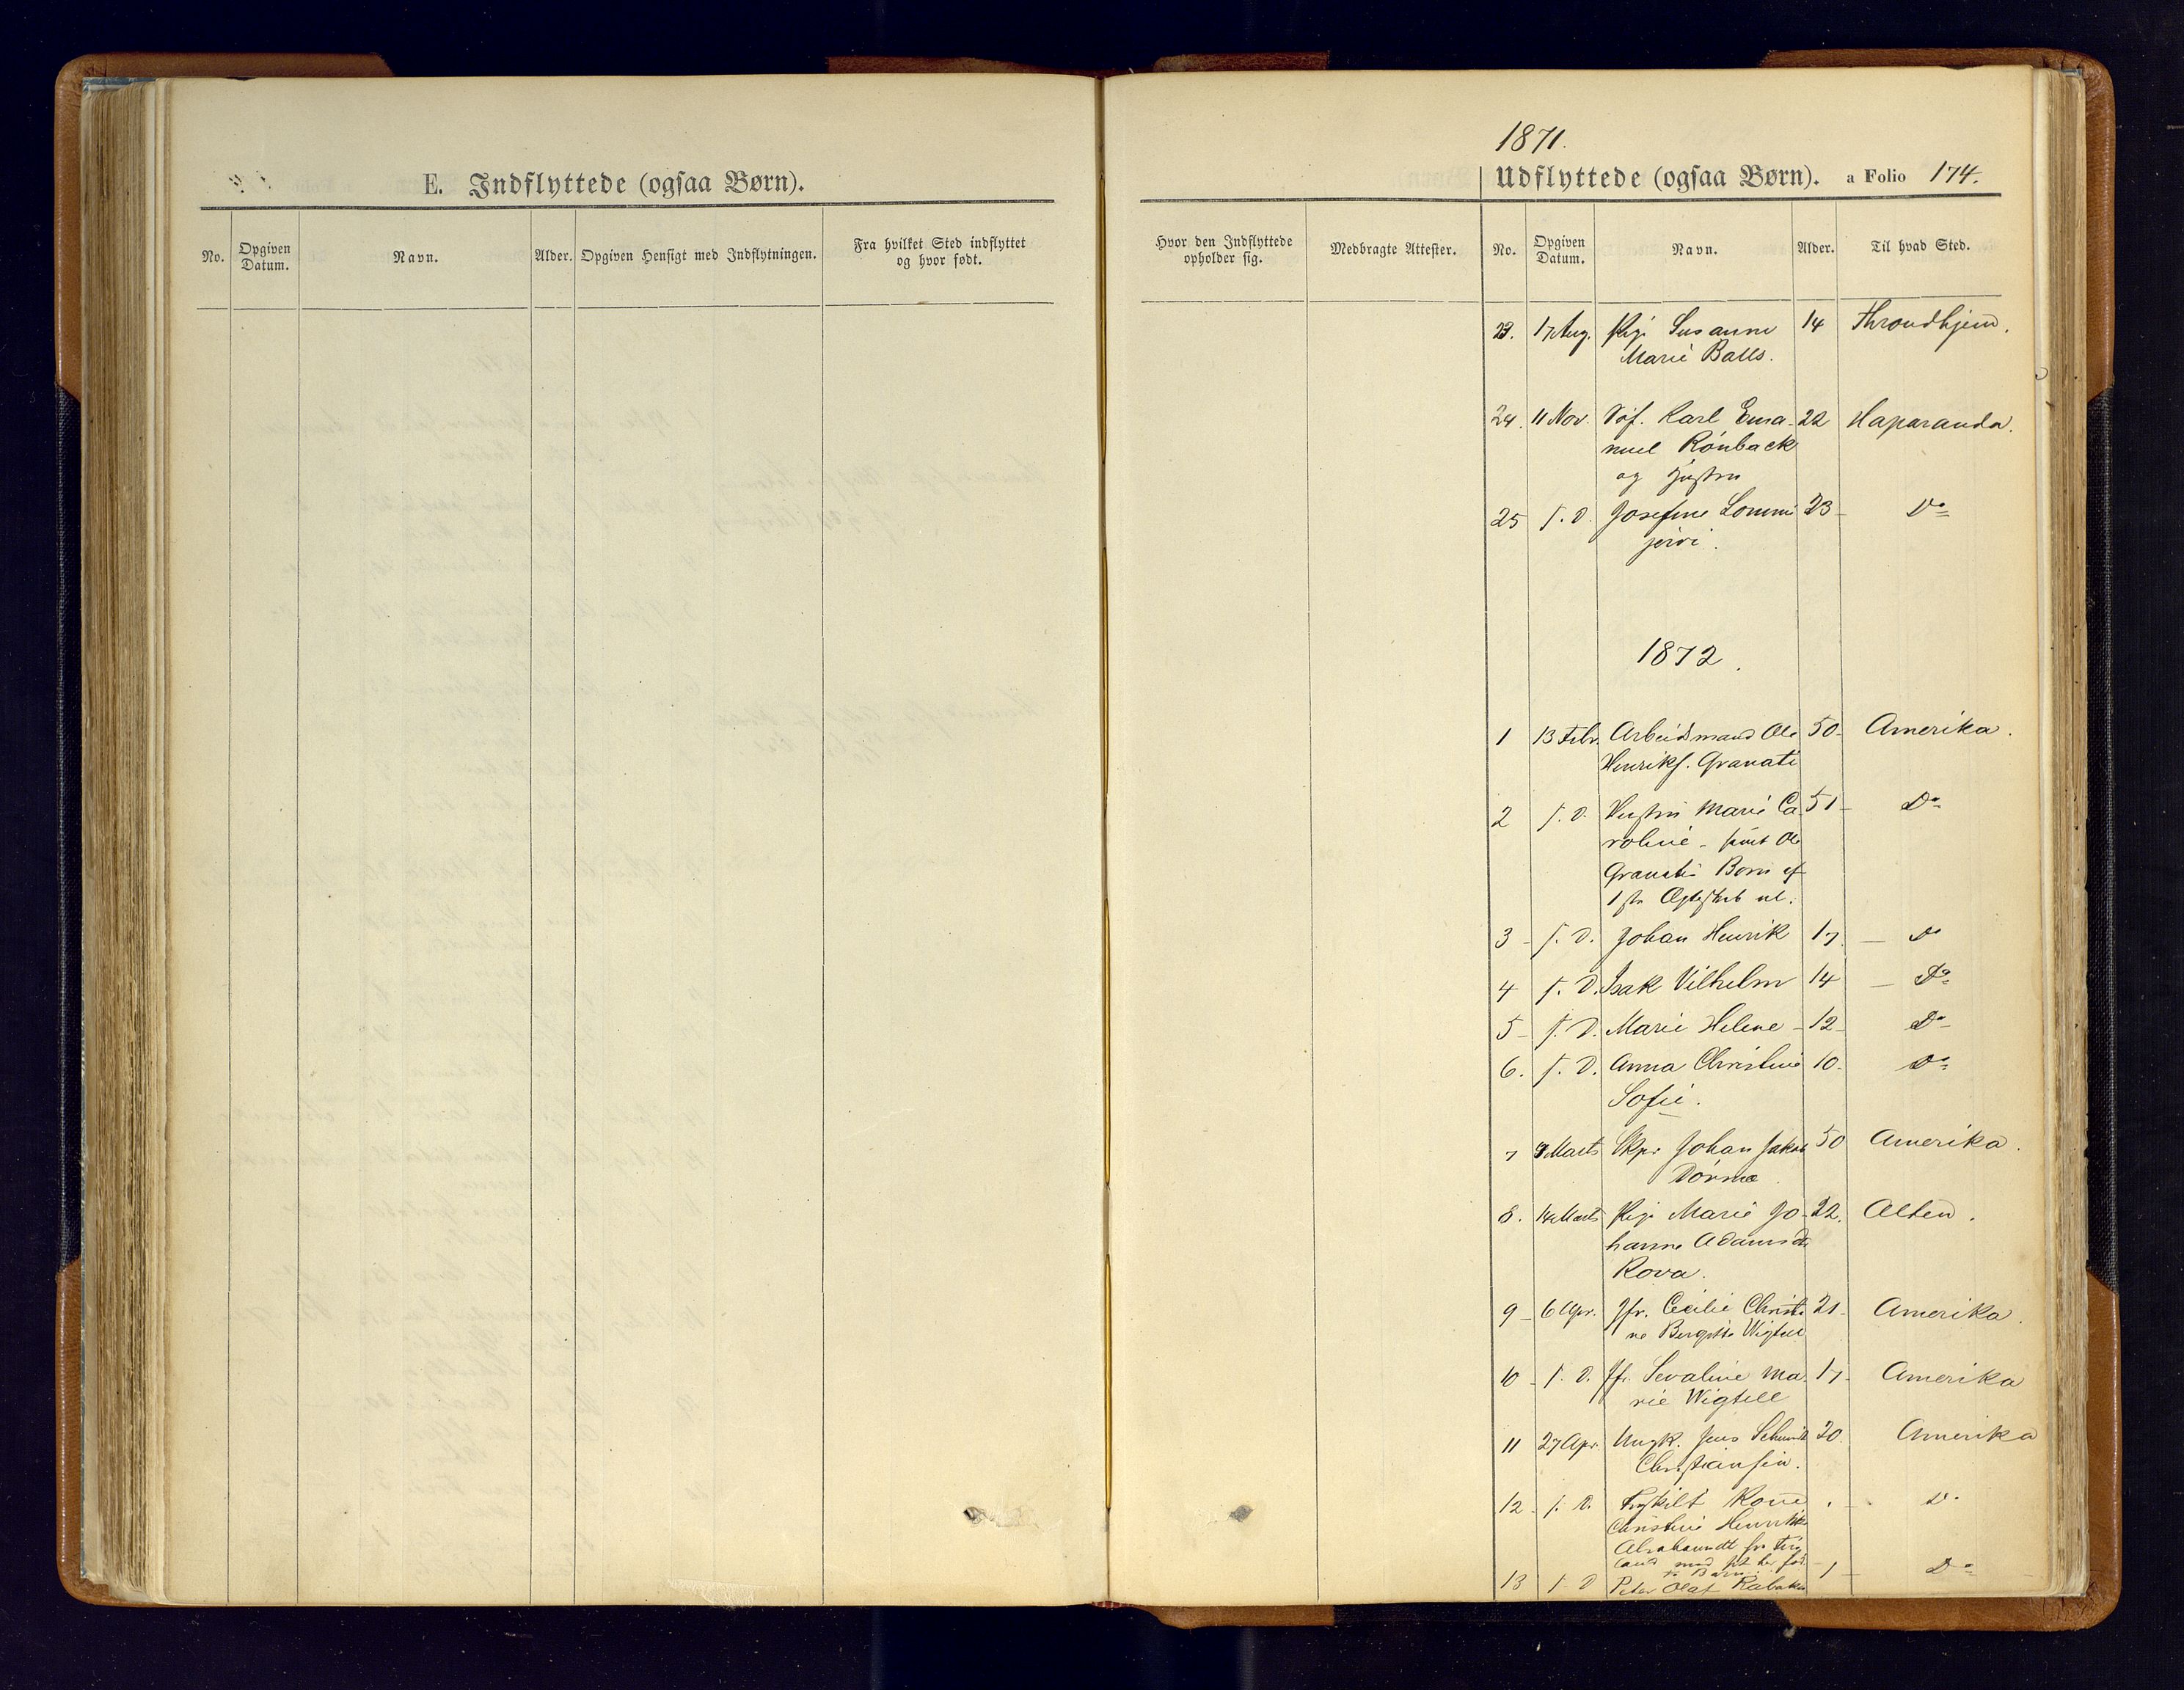 E. Indflyttede (ogsaa Børn).
No.
Opgiven Datum.
Navn.
Alder.
Opgiven Hensigt med Indflytningen.
Fra hvilket Sted indflyttet og hvor født.
1871.
Udflyttede (ogsaa Børn). a Folio 174.
Hvor den Indflyttede opholder sig.
Medbragte Attester.
No.
Opgiven Datum.
Navn.
Alder.
Til hvad Sted.
23. 17 Aug. Pige Susanne 14 Throndhjem.
Marie Balls.
24. 11 Nov. Karl Ema- 22 Haparanda.
nuel Rönback
og Hustru
25 s. D. Josefine Lommi 23 Do
jervi.
1872.
1 13 Febr. Arbeidsmand Ole 50 Amerika.
Henriks. Granati
2 s. D. Hustru Marie Ca 51 Do
roline - samt Ole
Granatis Børn af
1ste Ægteskab nl:
3 s. D. Johan Henrik 17 Do
4 s. D. Isak Vilhelm 14 Do
5 s. D. Marie Helene 12 Do
6. s. D. Anna Christine 10. Do
Sofie.
7 Marts Johan Jakob 50 Amerika.
8. 14 Marts Pige Marie Jo- 22. Alten.
hanne Adamsdr
Rova.
9 6 Apr. Jfr. Cecilie Christi 21 Amerika.
ne Bergitte Wigtell
10 s. D. Jfr. Sevaline Ma- 17 Amerika
rie Wigtell
11 27 Apr. Ungk. Jens Schmidt 20. Amerika
Christiansen.
12 s. D. Frskilt Kone Do
Christine Henrikke
13 s. D. Peter Olaf 1 Do